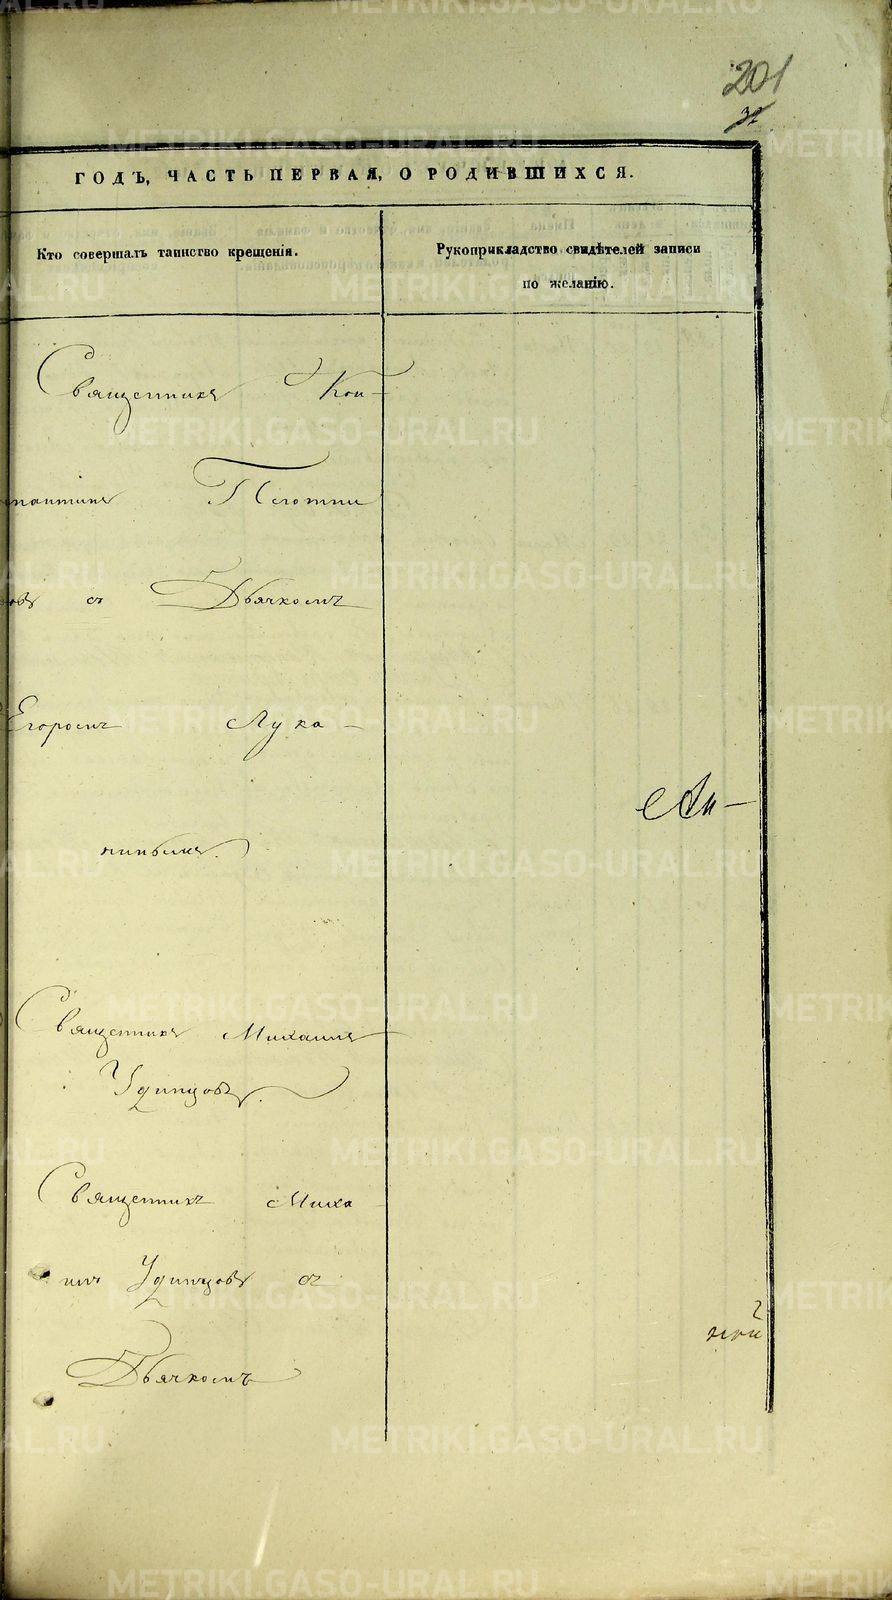 201
ГОДЪ, ЧАСТЬ ПЕРВАЯ, О РОДИВШИХСЯ.
Кто совершалъ таинство крещенія.
Рукоприкладство свидѣтелей записи
по желанію.
Священникъ Кон-
стантинъ Плотни
ковъ съ Дьячкомъ
Егоромъ Лука-
нинымъ.
Священникъ Михаилъ
Удинцовъ.
Священникъ Миха
илъ Удинцовъ съ
Дьячкомъ
ной
METRIKI.GASO-URAL.RU